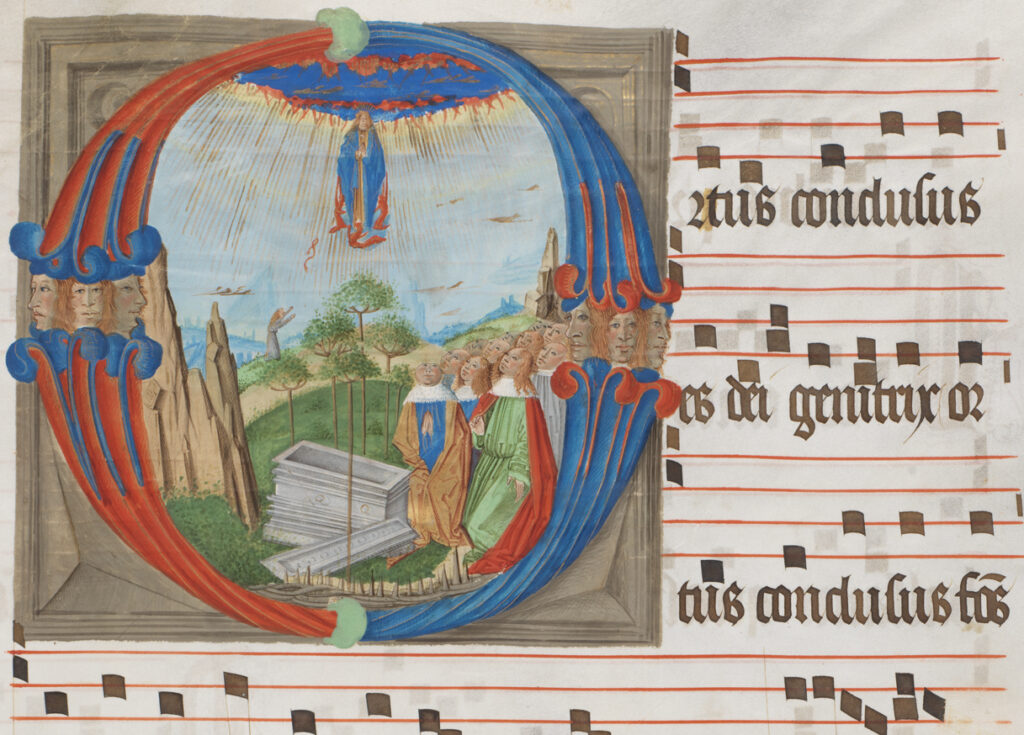 Ortus conclusus
es dei genitrix or
tus conclusus fōs